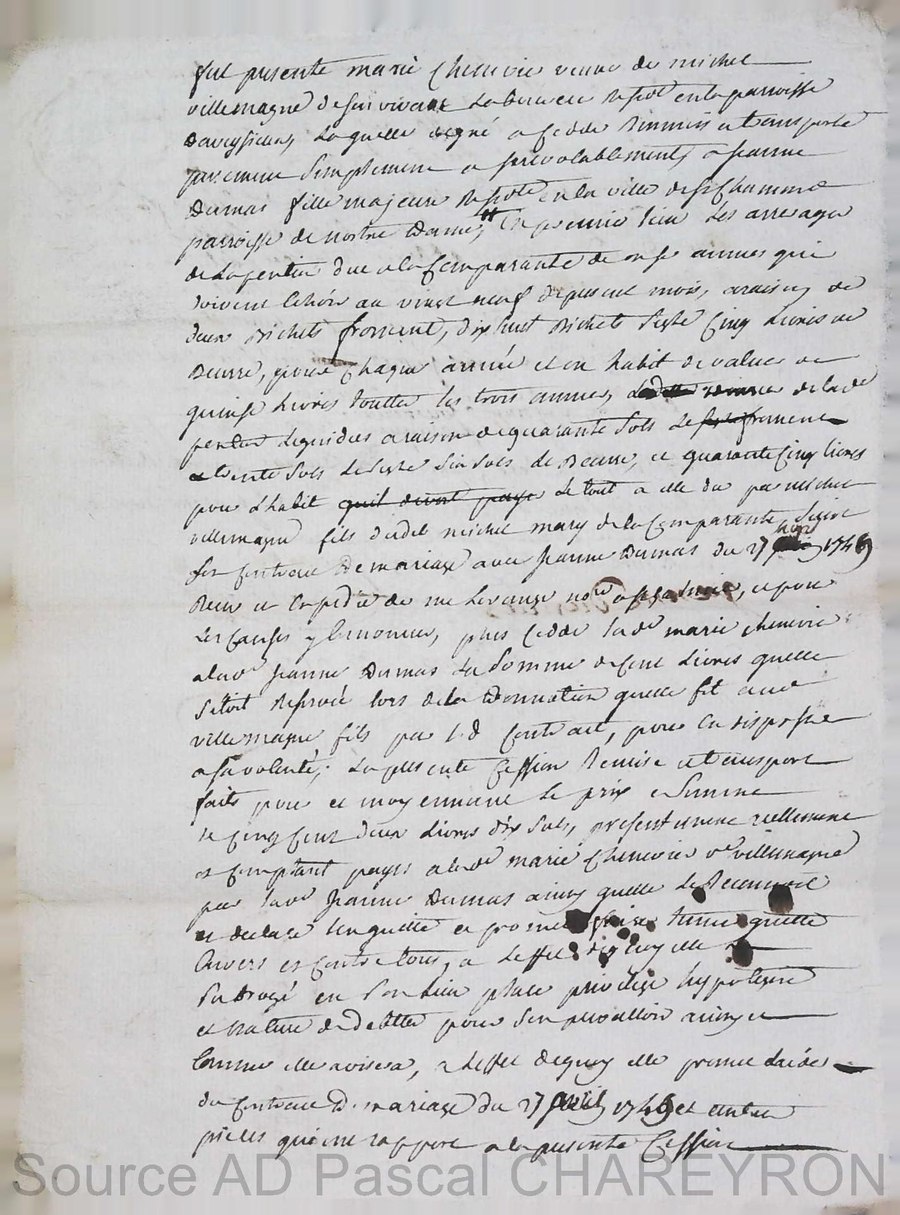 fut presente marie Chenevie veuve de michel
villemagne de son vivant Laboureur Resident en la parroisse
Daveysieux, Laquelle de gré a Cedde Remmis et transporté
purement simplement et irrevocablement, a jeanne
Dumas fille majeure Residte en la ville de St Chamond
parroisse de nostre Dame, en premier lieu Les arrerages
de La pention due a la Comparante de onse annees qui
doivent Echoir au vingt neuf du present mois, a raison de
deux Bichets froment, dix huit Bichets segle Cinq Livres de
Beurre, pour Chaque année et un habit de valeur de
quinse Livres touttes les trois annees, de lade
pention Liquidées a raison de quarante sols Le froment
trente sols Le segle six sols de Beurre, et quarante Cinq Livres
pour L'habit quil devoit payer Le tout a elle du par michel
villemagne fils dudit michel mary de la Comparante suivt
son Contract de mariage avec jeanne Dumas du 27 avril 1749
Reçu et Expedié de me nore, et pour
Les Causes y Enoncees, plus Cedde lade marie chenevie
a lade jeanne Dumas La somme de Cent Livres quelle
setoit Reservée lors de la Donnation quelle fit aud
villemagne fils par Ld Contract, pour en disposer
a sa volonté; La presente Cession Remise et transport
faits pour et moyennant Le prix et somme
de Cinq Cent deux Livres dix sols, presentement reellement
et Comptant payés a lade marie Chenevier ve villemagne
par lade jeanne Dumas ainsy quelle Le Reconnoit
et declare len quitte et promet faire tenir quitte
Envers et Contre tous, a Leffet de quoy elle La
subrogé en son Lieu place privilege hypoteque
et Nature de dette pour sen prevalloir ainsy et
Comme elle avisera, a Leffet de quoy elle
du Contract de mariage du 27 avril 1749 et autres
pieces quien rapport a la presente Cession
Source AD Pascal CHAREYRON